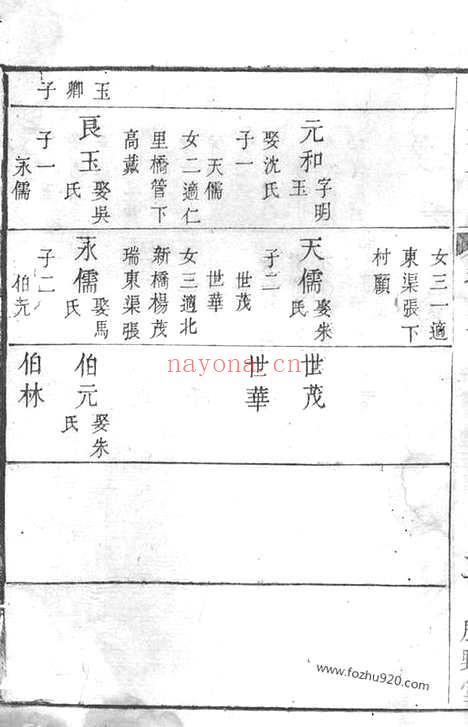 玉卿子
元和字明玉
娶沈氏
子一
天儒
女二適仁
里橋管下
高戴
良玉娶吳氏
子一
永儒
女三一適
東渠張下
村顧
天儒娶朱氏
子二
世茂
世華
女三適北
新橋楊茂
瑞東渠張
永儒娶馬氏
子二
伯元
世茂
世華
伯元娶朱氏
伯林
nayona.cn
www.fozhu920.com